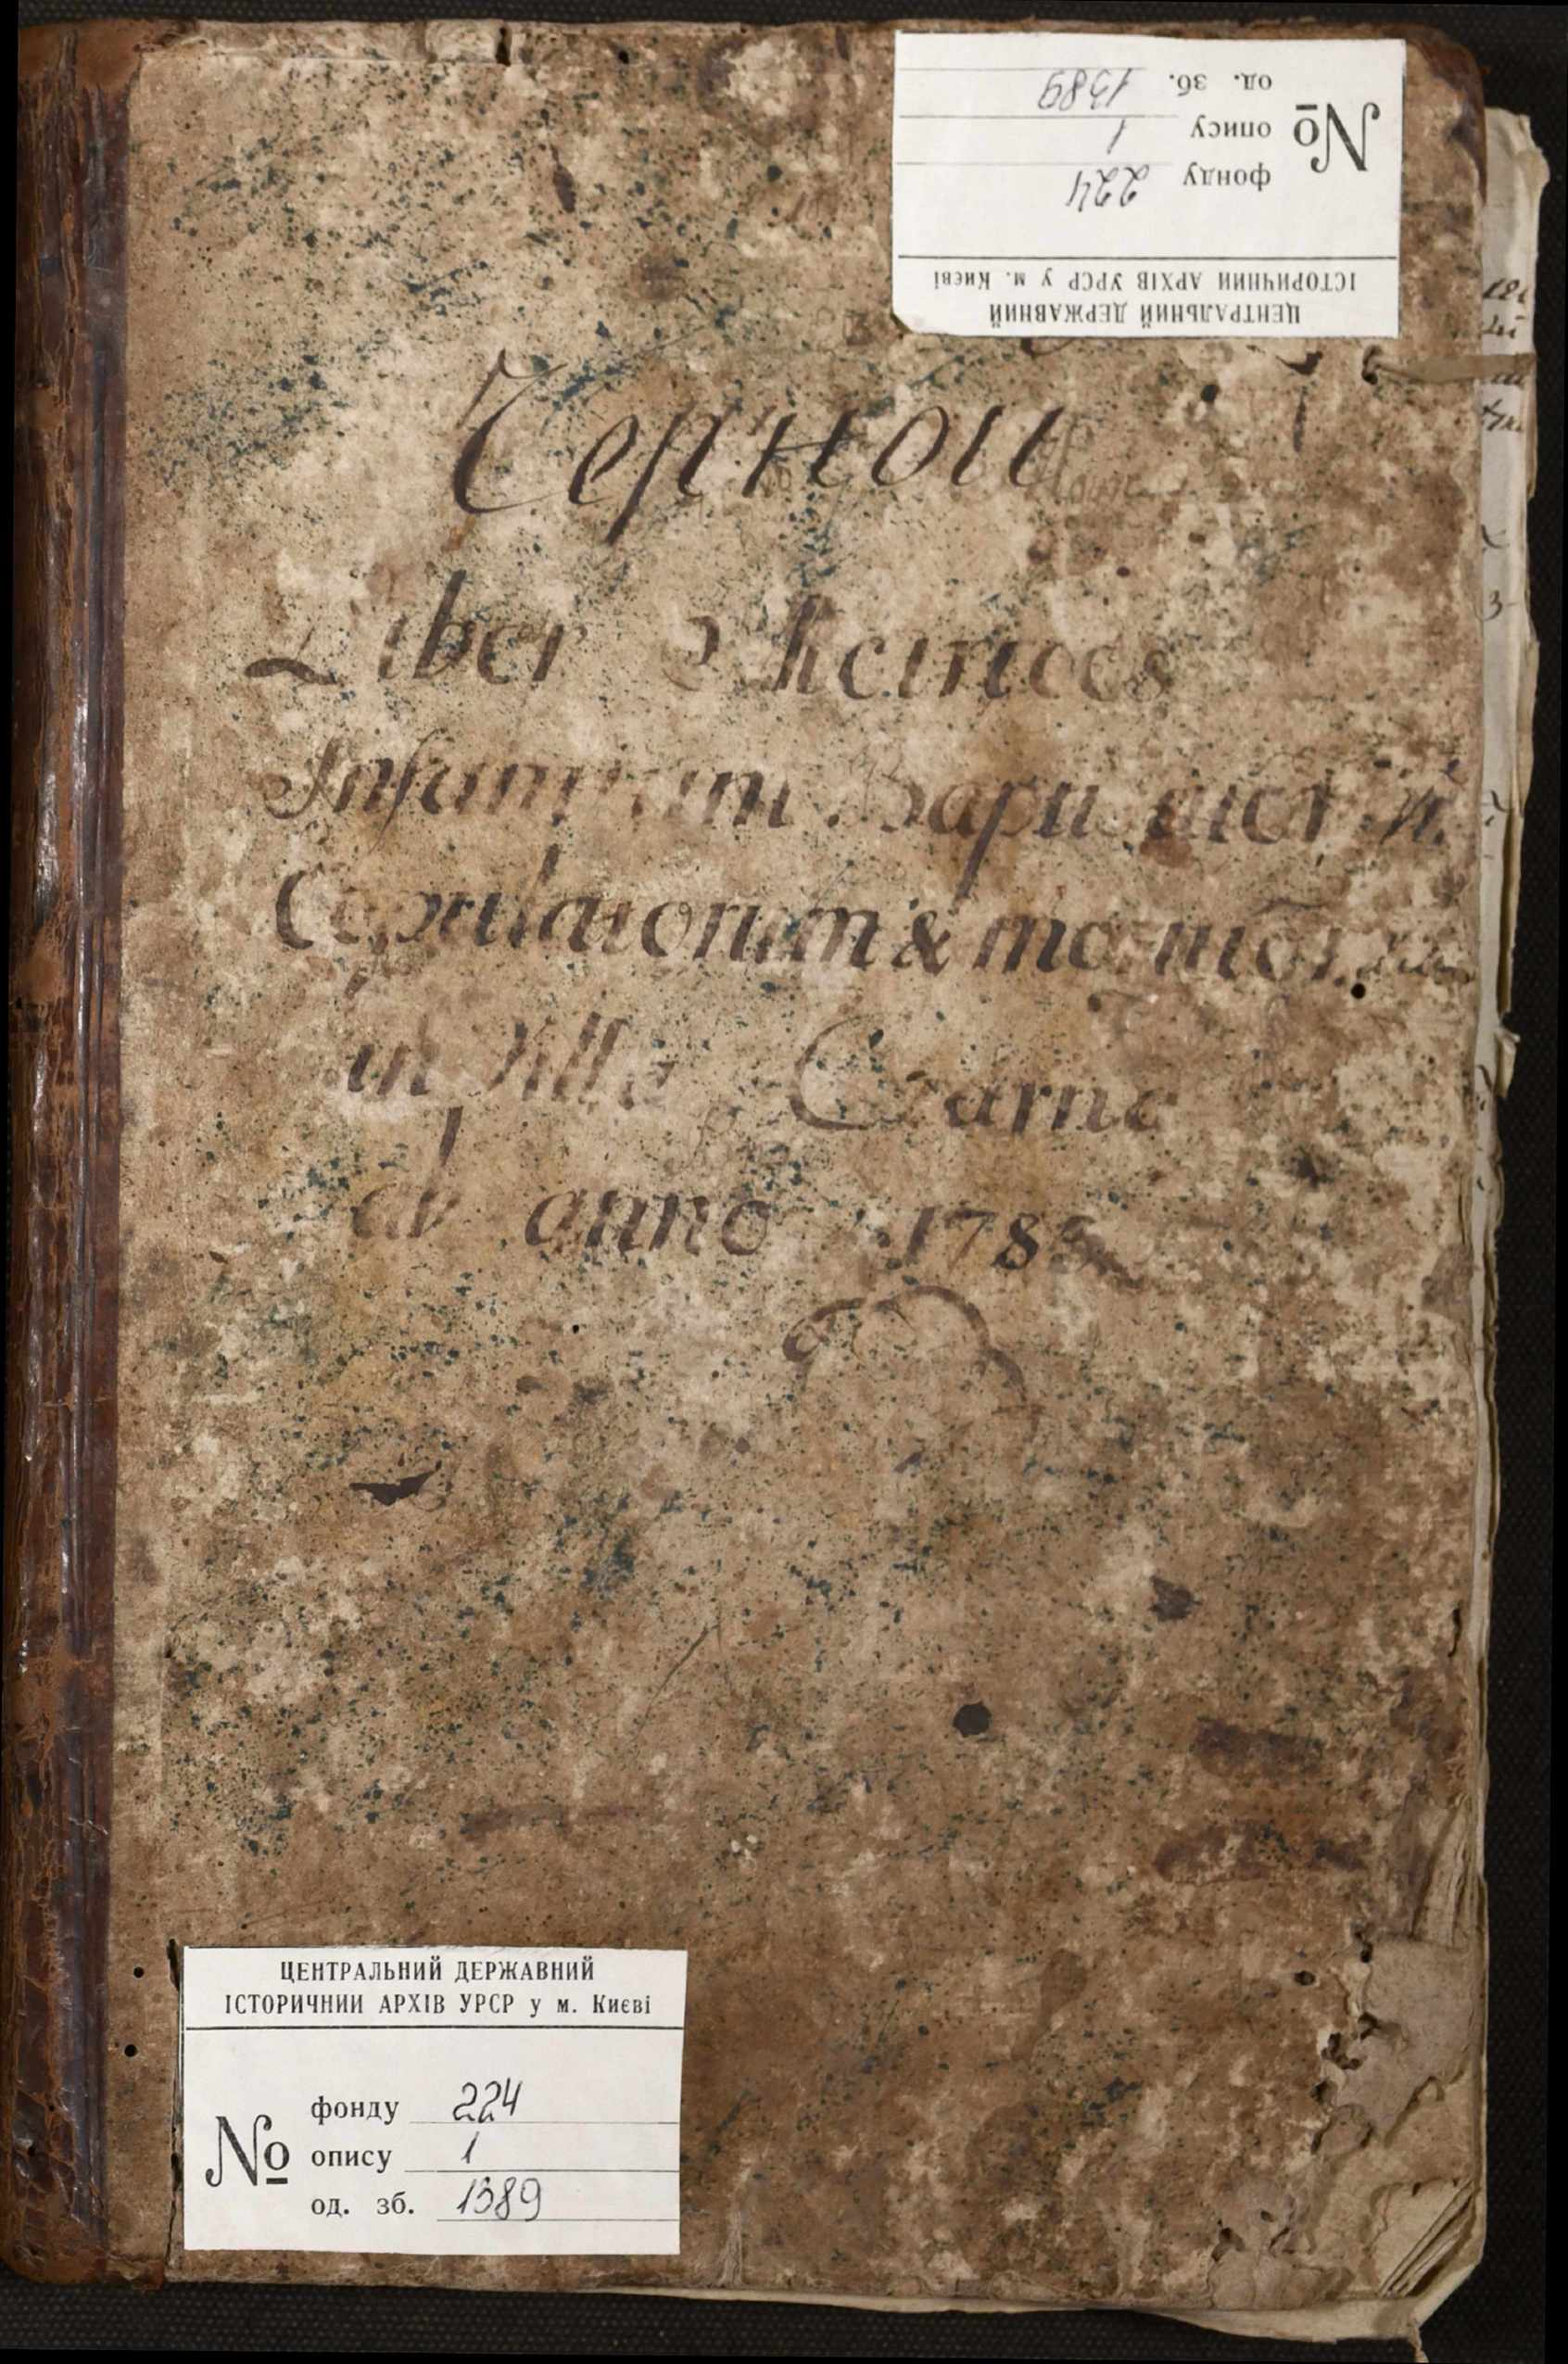 ЦЕНТРАЛЬНИЙ ДЕРЖАВНИЙ
ІСТОРИЧНИИ АРХІВ УРСР у м. Києві
№
фонду 224
опису 1
од. зб. 1389
Liber
Infantium Baptisatorum
Copulatorum & mortuorum
in Villa Czarne
ab anno 1785
ЦЕНТРАЛЬНИЙ ДЕРЖАВНИЙ
ІСТОРИЧНИИ АРХІВ УРСР у м. Києві
№
фонду 224
опису 1
од. зб. 1389